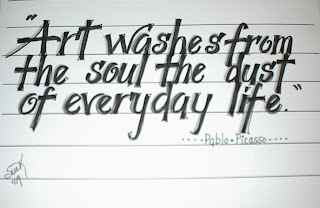 "Art washes from
the soul the dust
of everyday life."
....Pablo • Picasso....
'09